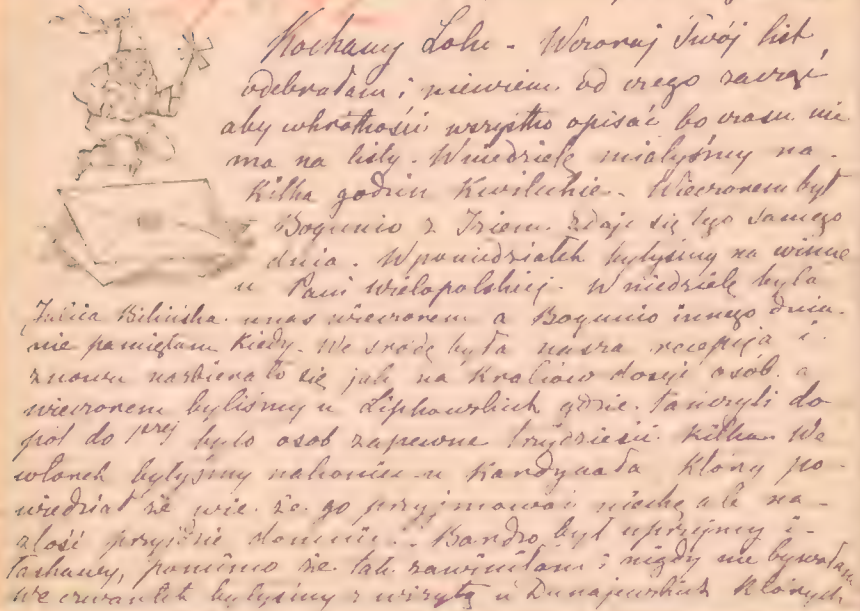 Kochany Lolu - Wczoraj Twój list
odebrałam i niewiem od czego zacząć
aby wkrótkości wszystko opisać bo czasu nie
ma na listy. Wniedzielę miałyśmy na
kilka godzin Kwileckie - Wieczorem był
Bogunio z Iziem zdaje się tego samego
dnia. Wponiedziałek byłyśmy na winie
u Pani Wielopolskiej. Wniedzielę była
Julcia Bilińska unas wieczorem a Bogunio innego dnia
nie pamiętam kiedy. We srodę była nasza recepcja i
znowu nazbierało się jak na Kraków dosyć osób a
wieczorem byliśmy u Lipkowskich gdzie tańczyli do
pół do było osob zapewne trzydzieści kilka We
wtorek byłyśmy u Kardynała który po-
wiedział że wie że go przyjmować niechcę ale na
złość przyjdzie domnie. - Bardzo był uprzejmy i
łaskawy, pomimo że tak zawiniłam i nigdy nie bywałam
We czwartek byłyśmy z wizytą u Dunajewskich których